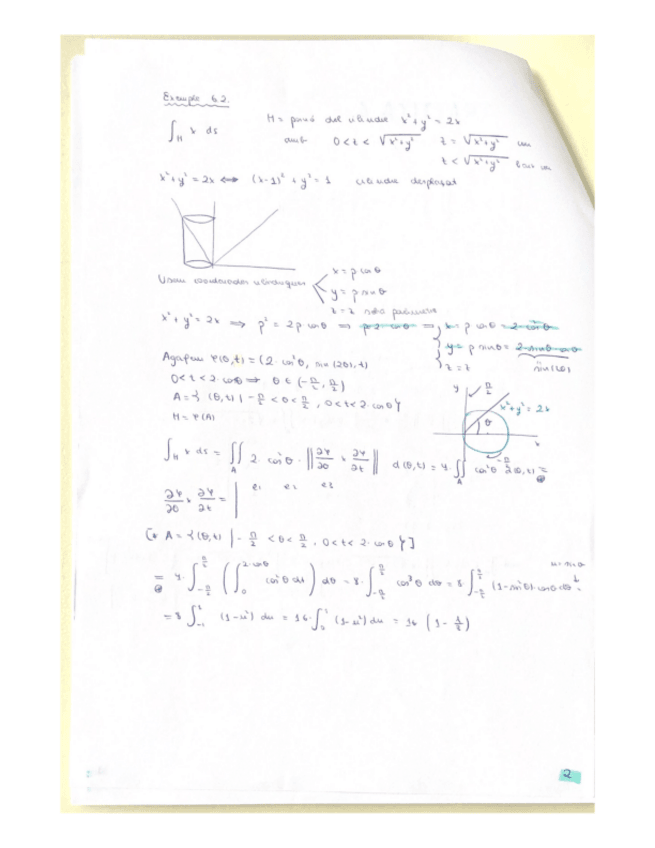 Exemple 6.2.
∫_H x ds H = porció del cilindre x²+y² = 2x
amb 0<z< √(x²+y²) z = √(x²+y²) con
z < √(x²+y²)
x²+y² = 2x ⟺ (x-1)² + y² = 1 cilindre desplaçat
Usem coordenades cilíndriques { x = ρ cos θ
y = ρ sin θ
z = z
x²+y² = 2x ⟹ ρ² = 2ρ cos θ ⟹ ρ 2 cos θ ⟹ { x = ρ cos θ = 2 cos² θ
y = ρ sin θ = 2 sin θ cos θ
z = z
sin(2θ)
Agafem Ψ(θ,t) = (2·cos²θ, sin(2θ), t)
0<t<2·cosθ ⟹ θ ∈ (-π/2, π/2)
A = { (θ,t) | -π/2 < θ < π/2 , 0<t<2·cosθ }
H = Ψ(A)
y π/2
x²+y² = 2x
θ
x
-π/2
∫_H x ds = ∬_A 2·cos²θ · ‖∂Ψ/∂θ × ∂Ψ/∂t‖ d(θ,t) = 4·∬_A cos²θ d(θ,t) =
∂Ψ/∂θ × ∂Ψ/∂t = | e₁ e₂ e₃
A = { (θ,t) | -π/2 < θ < π/2 , 0<t<2·cosθ } ]
u = sin θ
= 4·∫_{-π/2}^{π/2} ( ∫_0^{2·cosθ} cos²θ dt ) dθ = 8·∫_{-π/2}^{π/2} cos³θ dθ = 8 ∫_{-π/2}^{π/2} (1-sin²θ)·cosθ dθ =
= 8 ∫_{-1}^{1} (1-u²) du = 16·∫_0^1 (1-u²) du = 16 (1 - 1/3)
2